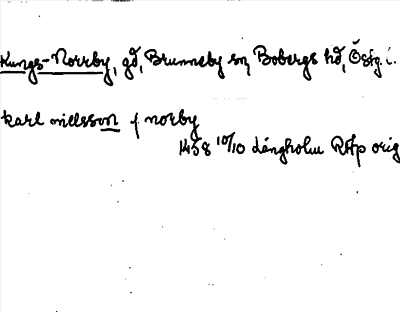 Kungs-Norrby, gd, Brunneby sn, Bobergs hd, Östg. l.
karl nielsson j norby
1458 10/10 Längholm RAp orig